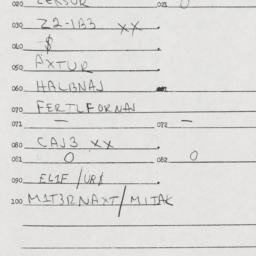 020 CERSUR 021 0
030 Z2-1B3 XX
040 $
050 AXTUR
060 HALBNAJ
070 FERTLFORNAJ
071 — 072 —
080 CAJ3 XX
081 0 082 0
090 ELIF/UR$
100 M1T3RNAXT/MITAK